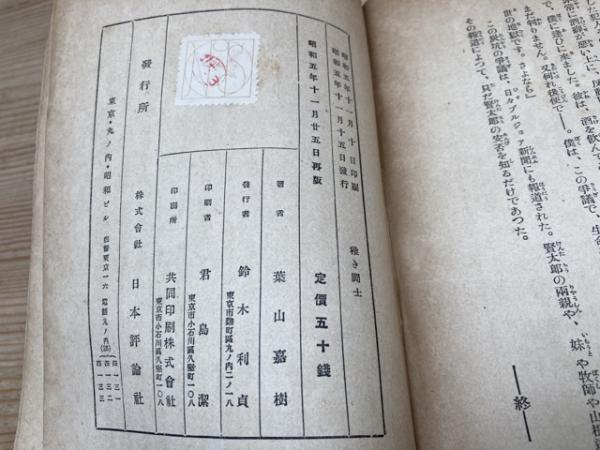 世の地獄です。さよなら」
この炭坑の爭議は、日々ブルジョア新聞にも報道された。賢太郎の兩親や、妹や牧師や山根
その報道によつて、只賢太郎の安否を知るだけであつた。
――終――
昭和五年十一月十日印刷
昭和五年十一月十五日發行
昭和五年十一月廿五日再版
稚き鬪士
定價五十錢
著者 葉山嘉樹
發行者 鈴木利貞
東京市麴町區丸ノ內二ノ一八
印刷者 君島潔
東京市小石川區久堅町一〇八
印刷所 共同印刷株式會社
東京市小石川區久堅町一〇八
發行所 株式會社 日本評論社
東京・丸ノ內・昭和ビル
振替東京一六 電話丸ノ內(23)
四一三一
四一三二
四一三三